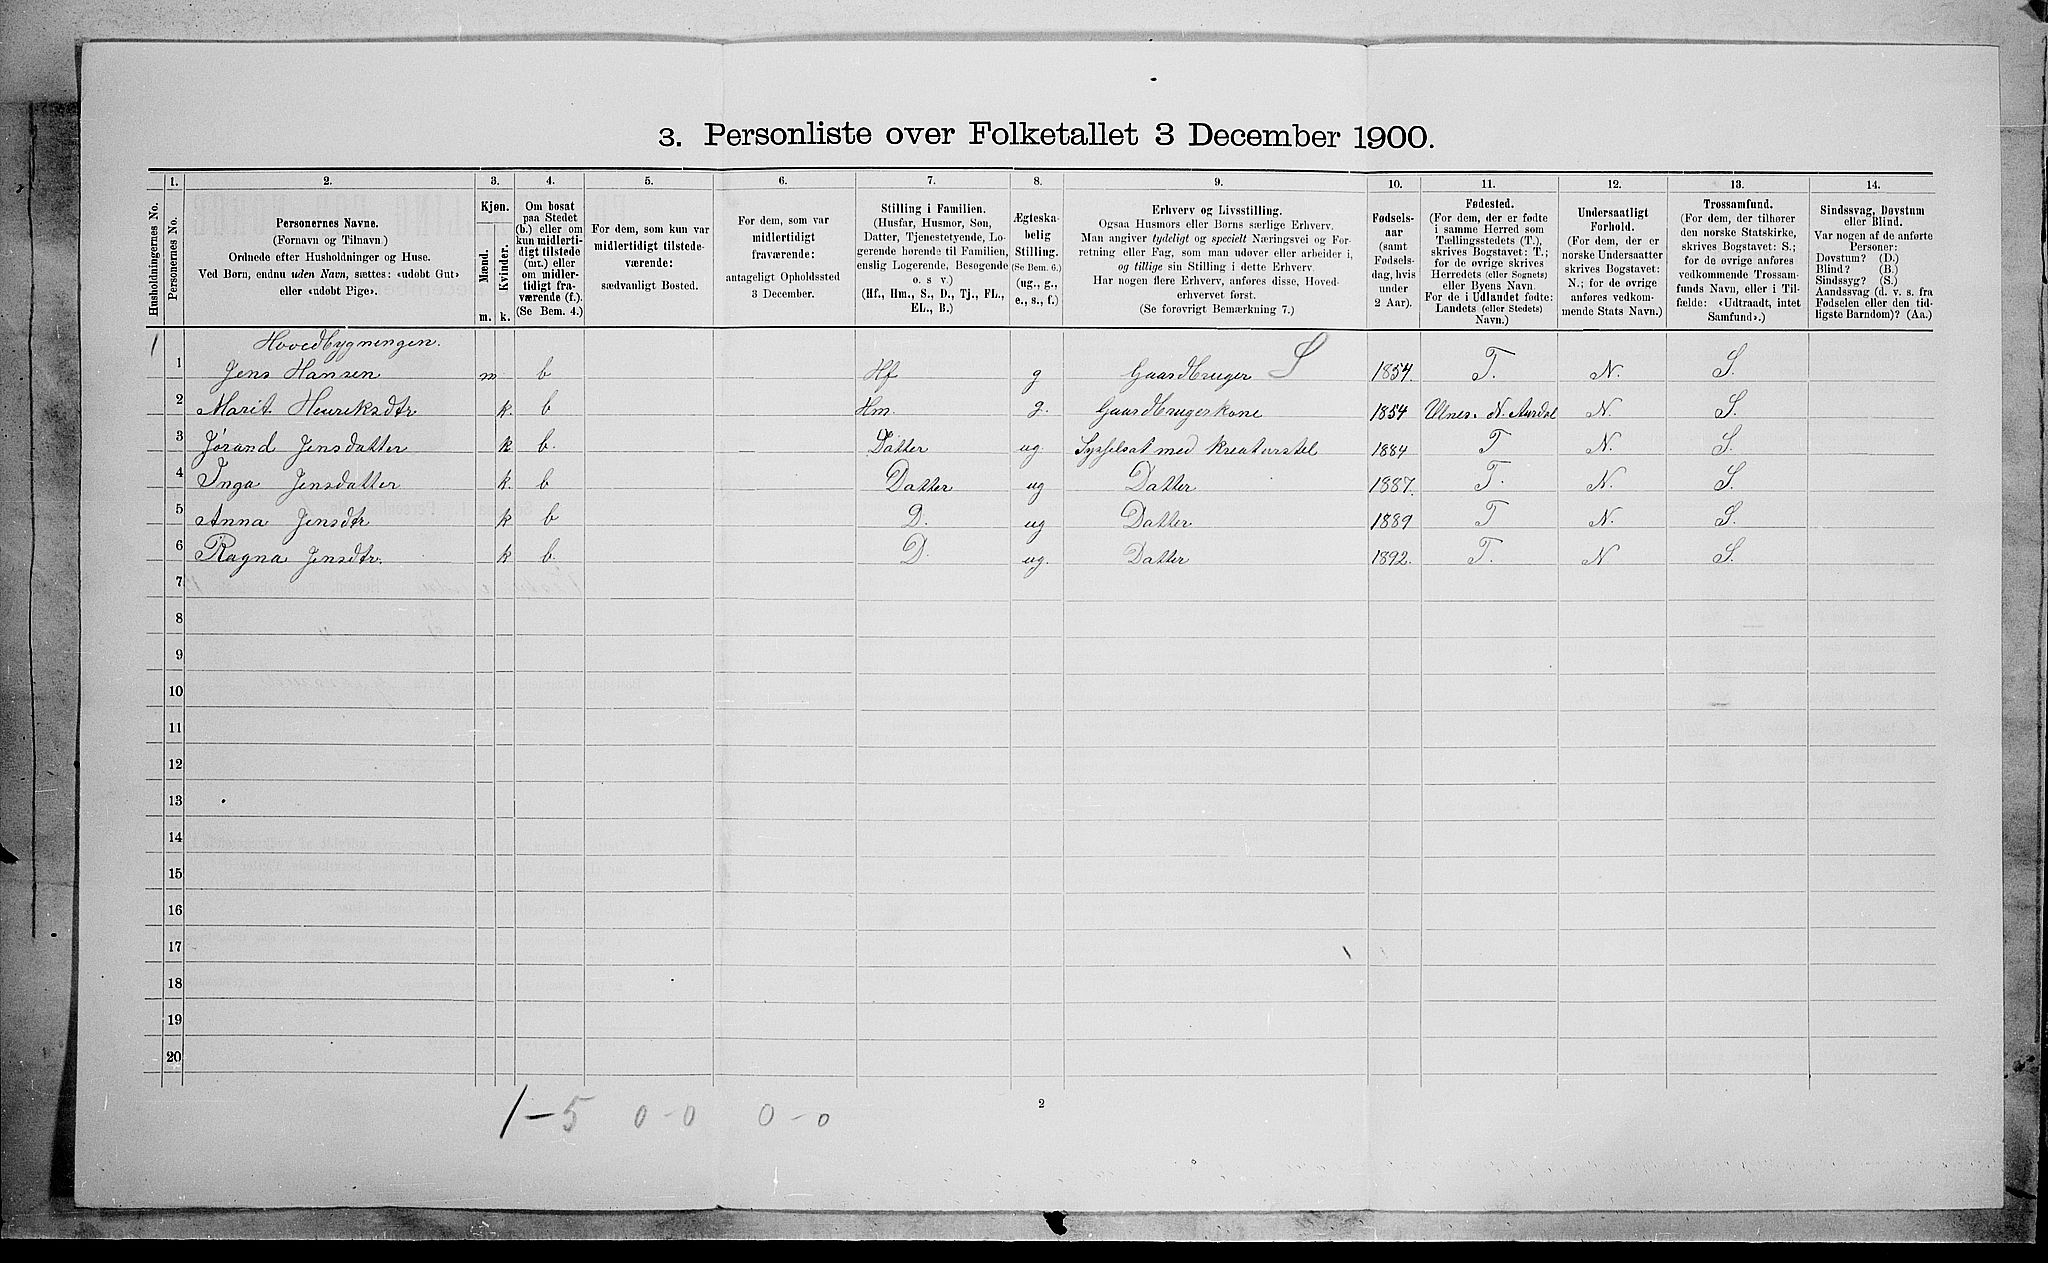 3. Personliste over Folketallet 3 December 1900.
1. 2. 3. 4. 5. 6. 7. 8. 9. 10. 11. 12. 13. 14.
Husholdningernes No.
Personernes No.
Personernes Navne.
(Fornavn og Tilnavn)
Ordnede efter Husholdninger og Huse.
Ved Børn, endnu uden Navn, sættes: «udobt Gut»
eller «udobt Pige».
Kjøn.
Mænd.
m.
Kvinder.
k.
Om bosat
paa Stedet
(b.) eller om
kun midlerti-
digt tilstede
(mt.) eller
om midler-
tidigt fra-
værende (f.).
(Se Bem. 4.)
For dem, som kun var
midlertidigt tilstede-
værende:
sædvanligt Bosted.
For dem, som var
midlertidigt
fraværende:
antageligt Opholdssted
3 December.
Stilling i Familien.
(Husfar, Husmor, Søn,
Datter, Tjenestetyende, Lo-
gerende hørende til Familien,
enslig Logerende, Besøgende
o. s v.)
(Hf., Hm., S., D., Tj., FL.,
EL., B.)
Ægteska-
belig
Stilling.
(Se Bem. 6.)
(ug., g.,
e., s., f.)
Erhverv og Livsstilling.
Ogsaa Husmors eller Børns særlige Erhverv.
Man angiver tydeligt og specielt Næringsvei og For-
retning eller Fag, som man udøver eller arbeider i,
og tillige sin Stilling i dette Erhverv.
Har nogen flere Erhverv, anføres disse, Hoved-
erhvervet først.
(Se forøvrigt Bemærkning 7.)
Fødsels-
aar
(samt
Fødsels-
dag, hvis
under
2 Aar).
Fødested.
(For dem, der er fødte
i samme Herred som
Tællingsstedets (T.),
skrives Bogstavet: T.;
for de øvrige skrives
Herredets (eller Sognets)
eller Byens Navn.
For de i Udlandet fødte:
Landets (eller Stedets)
Navn.)
Undersaatligt
Forhold.
(For dem, der er
norske Undersaatter
skrives Bogstavet:
N.; for de øvrige
anføres vedkom-
mende Stats Navn.)
Trossamfund.
(For dem, der tilhører
den norske Statskirke,
skrives Bogstavet: S.;
for de øvrige anføres
vedkommende Trossam-
funds Navn, eller i Til-
fælde: «Udtraadt, intet
Samfund».)
Sindssvag, Døvstum
eller Blind.
Var nogen af de anførte
Personer:
Døvstum? (D.)
Blind? (B.)
Sindssyg? (S.)
Aandssvag (d. v. s. fra
Fødselen eller den tid-
ligste Barndom)? (Aa.)
1 Hovedbygningen.
1 Jens Hansen m b Hf g Gaardbruger S 1854. T. N. S.
2 Marit Henriksdtr k. b Hm. g. Gaardbrugerkone 1854 Ulnes. N. Aurdal N. S.
3 Jørand Jensdatter k b. Datter ug. Sysselsat med kreaturstel 1884 T N. S.
4 Inga Jensdatter k. b Datter ug Datter 1887. T. N. S.
5 Anna Jensdtr k b D. ug Datter 1889 T N. S.
6 Ragna Jensdtr. k b. D. ug. Datter 1892. T. N S
7
8
9
10
11
12
13
14
15
16
17
18
19
20
1-5 0-0 0-0
2